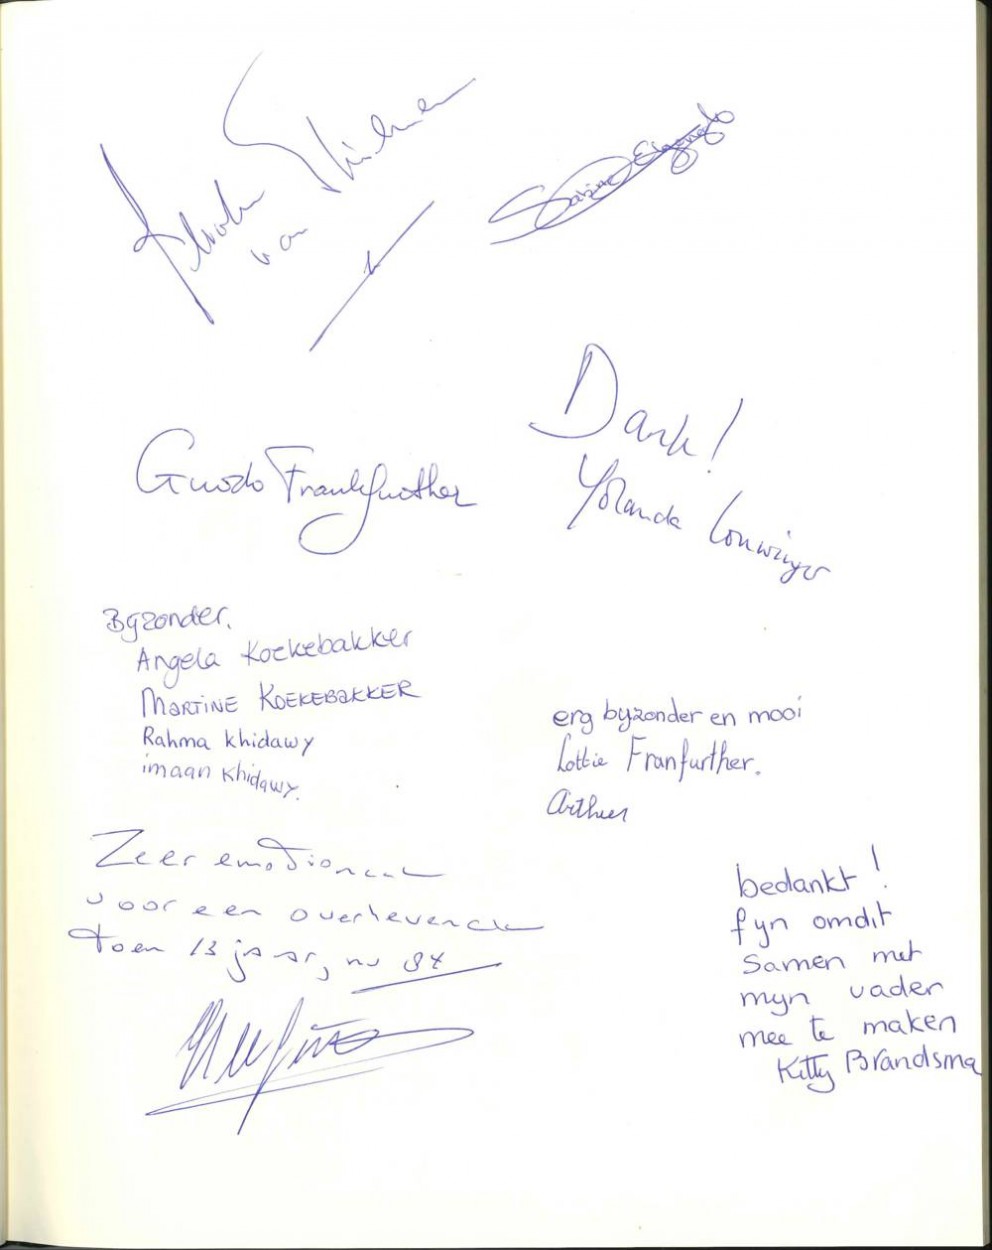 van
Sabine
Dank!
Guido Frankfurther
Yolanda
Byzonder.
Angela Koekebakker
MARTINE KOEKEBAKKER
Rahma Khidawy
imaan Khidawy.
erg byzonder en mooi
Lottie Franfurther.
Arthur
Zeer emotioneel
voor een overlevende
toen 13 jaar, nu 84
bedankt!
fyn omdit
samen met
myn vader
mee te maken
Kitty Brandsma